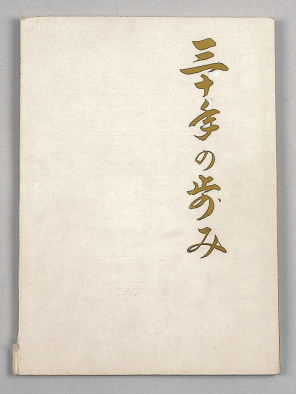 三十年の歩み